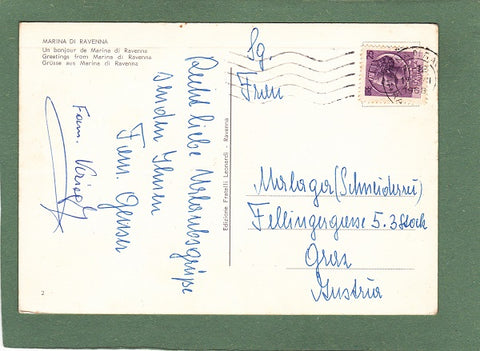 MARINA DI RAVENNA
Un bonjour de Marina di Ravenna
Greetings from Marina di Ravenna
Grüsse aus Marina di Ravenna
Recht liebe Urlaubsgrüße
senden Ihnen
Fam.
Fam.
2
Edizione Fratelli Leonardi - Ravenna
Sg.
Frau
Malaga (Schneiderei)
Fellingergasse 5. 3 Stock
Graz
Austria